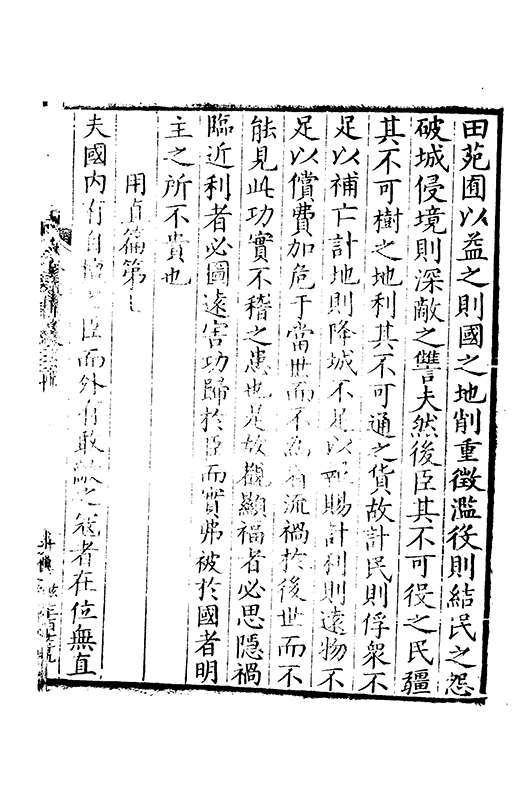 田苑囿以益之則國之地削重徵濫役則結民之怨
破城侵境則深敵之讐夫然後臣其不可役之民疆
其不可樹之地利其不可通之貨故計民則俘衆不
足以補亡計地則降城不足以配賜計利則遠物不
足以償費加危于當世而不為者流禍於後世而不
能見此功實不稽之患也是故觀顯福者必思隱禍
臨近利者必圖遠害功歸於臣而實弗被於國者明
主之所不貴也
用直篇第
夫國内有自 之臣而外有敢敵之寇者在位無直